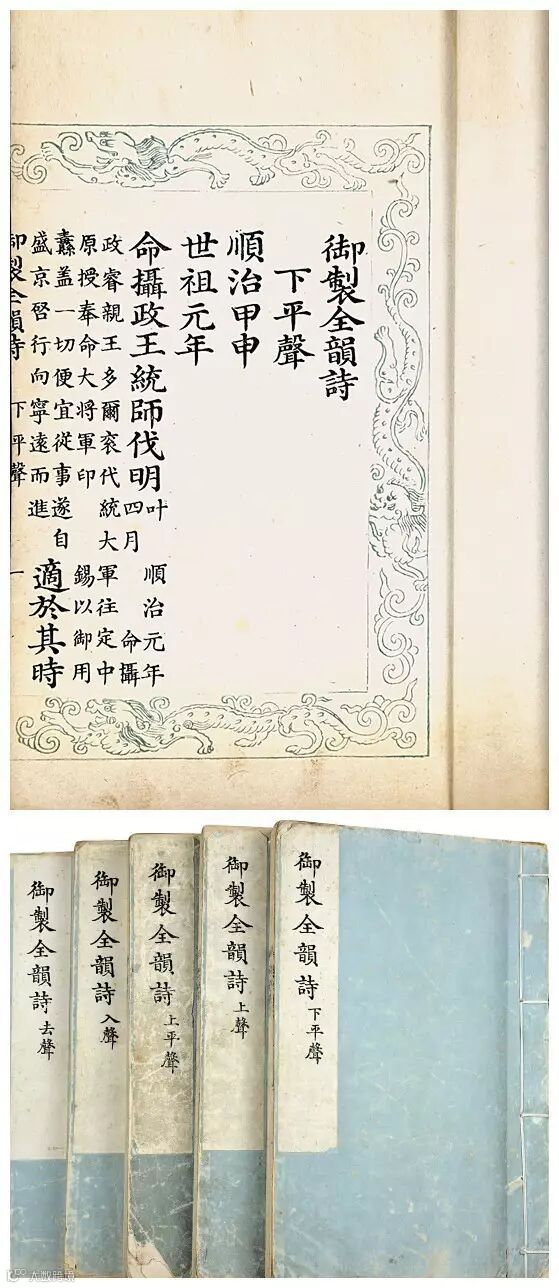 御製全韻詩
下平聲
順治甲申
世祖元年
命攝政王統師伐明
叶 順治元年
四月 命攝
政睿親王多爾袞代統大軍往定中
原授奉命大將軍印 錫以御用
纛盖一切便宜從事遂自
盛京啓行向寧遠而進
適於其時
御製全韻詩 下平聲 一
御製全韻詩 下平聲
御製全韻詩 上聲
御製全韻詩 上平聲
御製全韻詩 入聲
御製全韻詩 去聲
大数跨境